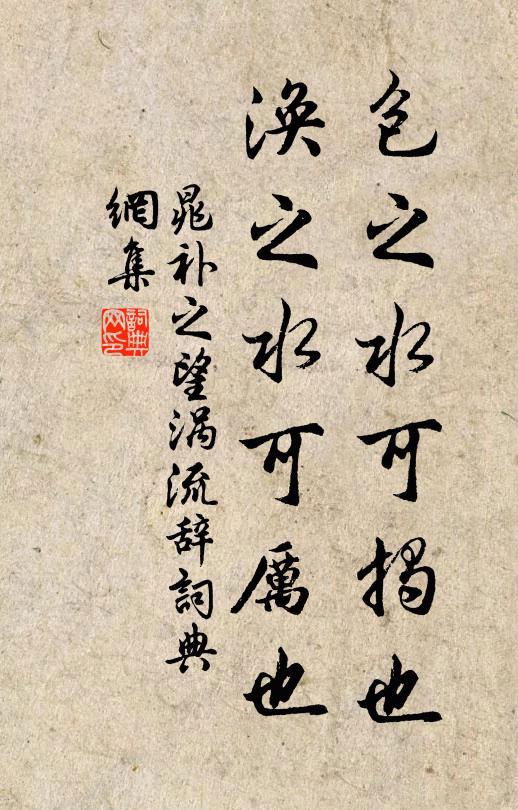 包之水可揭也
涣之水可厲也
晁补之望涡流辞詞典
網集
詞典网印